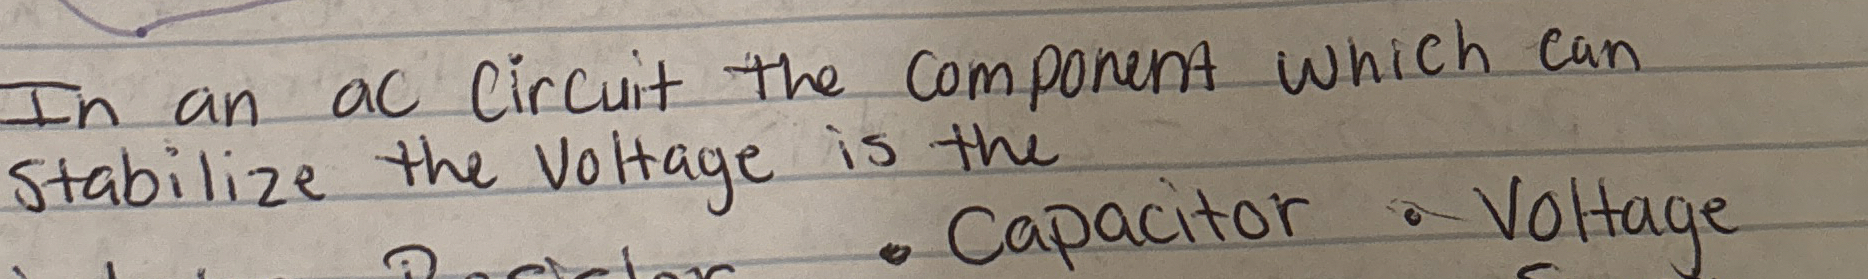 In an ac Circuit the component which can
stabilize the Voltage is the
• Capacitor • Voltage